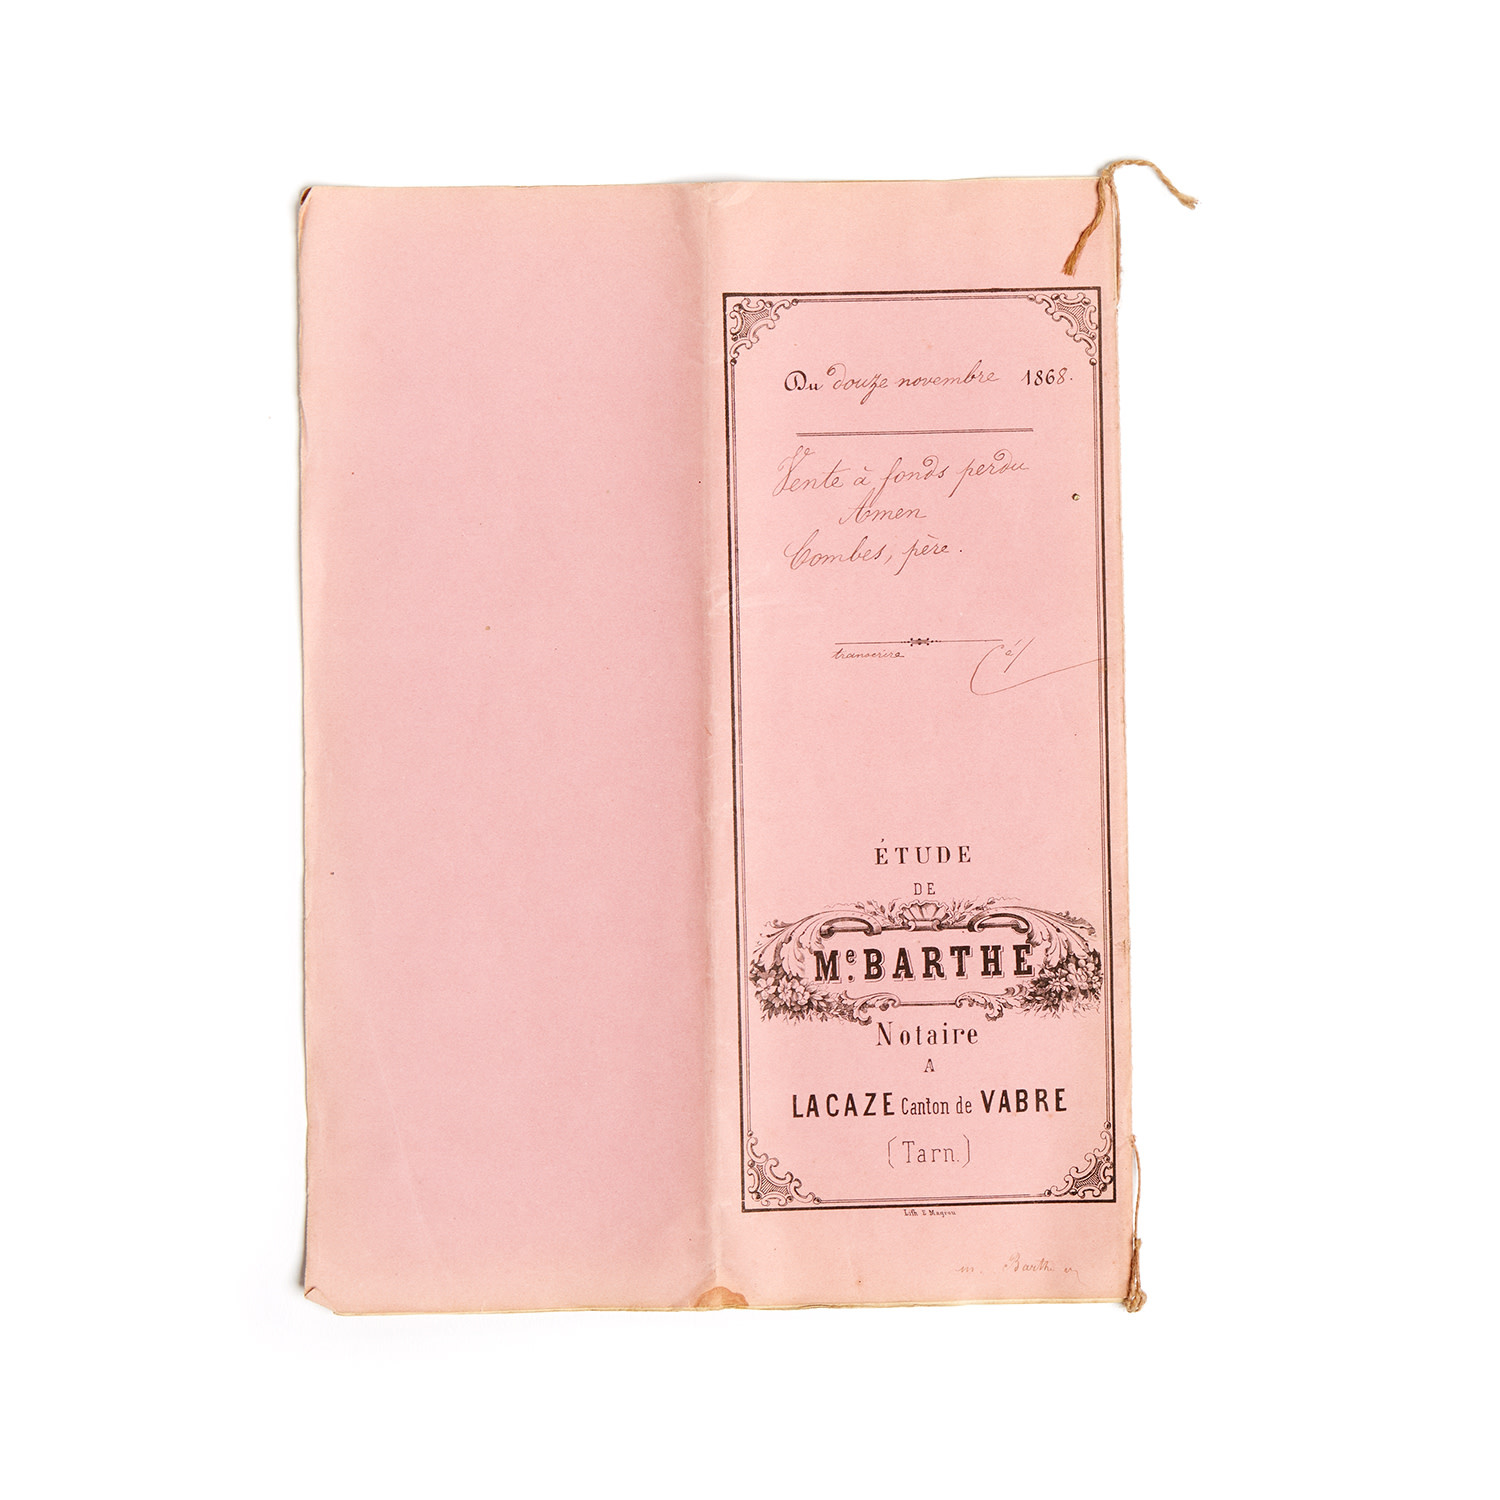 Du douze novembre 1868.
Vente à fonds perdu
Amen
Combes, père.
transcrire
ÉTUDE
DE
Me. BARTHE
Notaire
A
LACAZE Canton de VABRE
(Tarn.)
Lith
m. Barthe